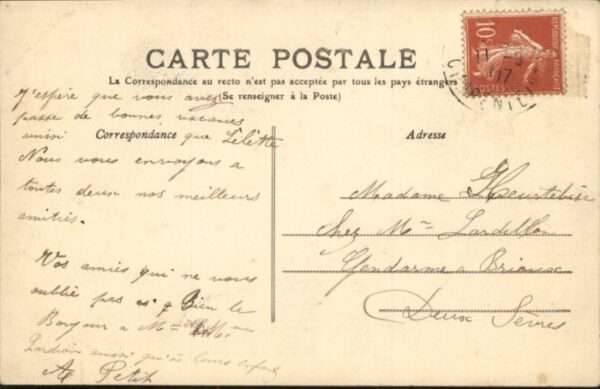 CARTE POSTALE
La Correspondance au recto n'est pas acceptée par tous les pays étrangers
(Se renseigner à la Poste)
Correspondance
J'espère que vous avez
passé de bonnes vacances
ainsi que Lélette
Nous vous envoyons a
toutes deux nos meilleurs
amitiés.
Vos amies qui ne vous
oublie pas et Bien le
Bonjour a Mr
aussi qu'à leurs enfants
A Petit
10c
POSTES
11
17
Adresse
Madame Heurtebise
Chez Mr Lardillon
Gendarme a Brioux
Deux Sèvres